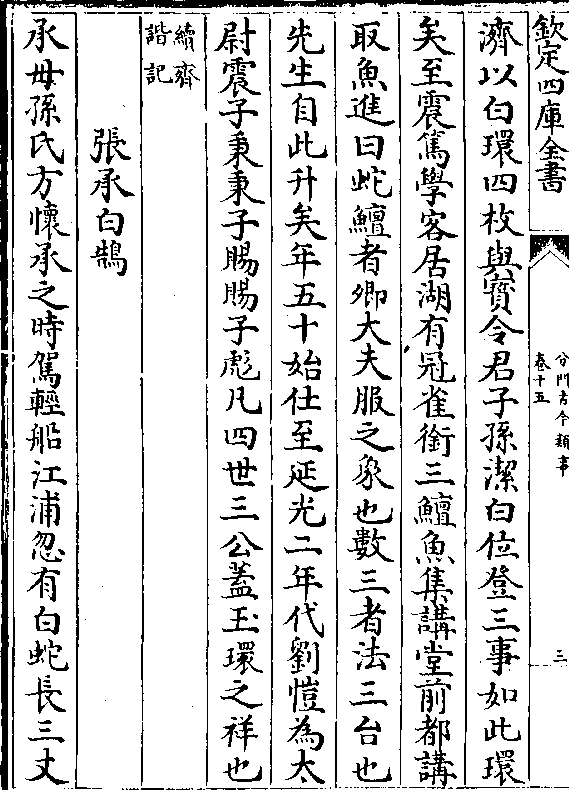 欽定四庫全書
分門古今類事
卷十五
三
濟以白環四枚與寳令君子孫潔白位登三事如此環
矣至震篤學客居湖有冠雀銜三鱣魚集講堂前都講
取魚進曰蛇鱣者卿大夫服之象也數三者法三台也
先生自此升矣年五十始仕至延光二年代劉愷為太
尉震子秉秉子賜賜子彪凡四世三公葢玉環之祥也
續齊
諧記
張承白鵠
承母孫氏方懷承之時駕輕船江浦忽有白蛇長三丈